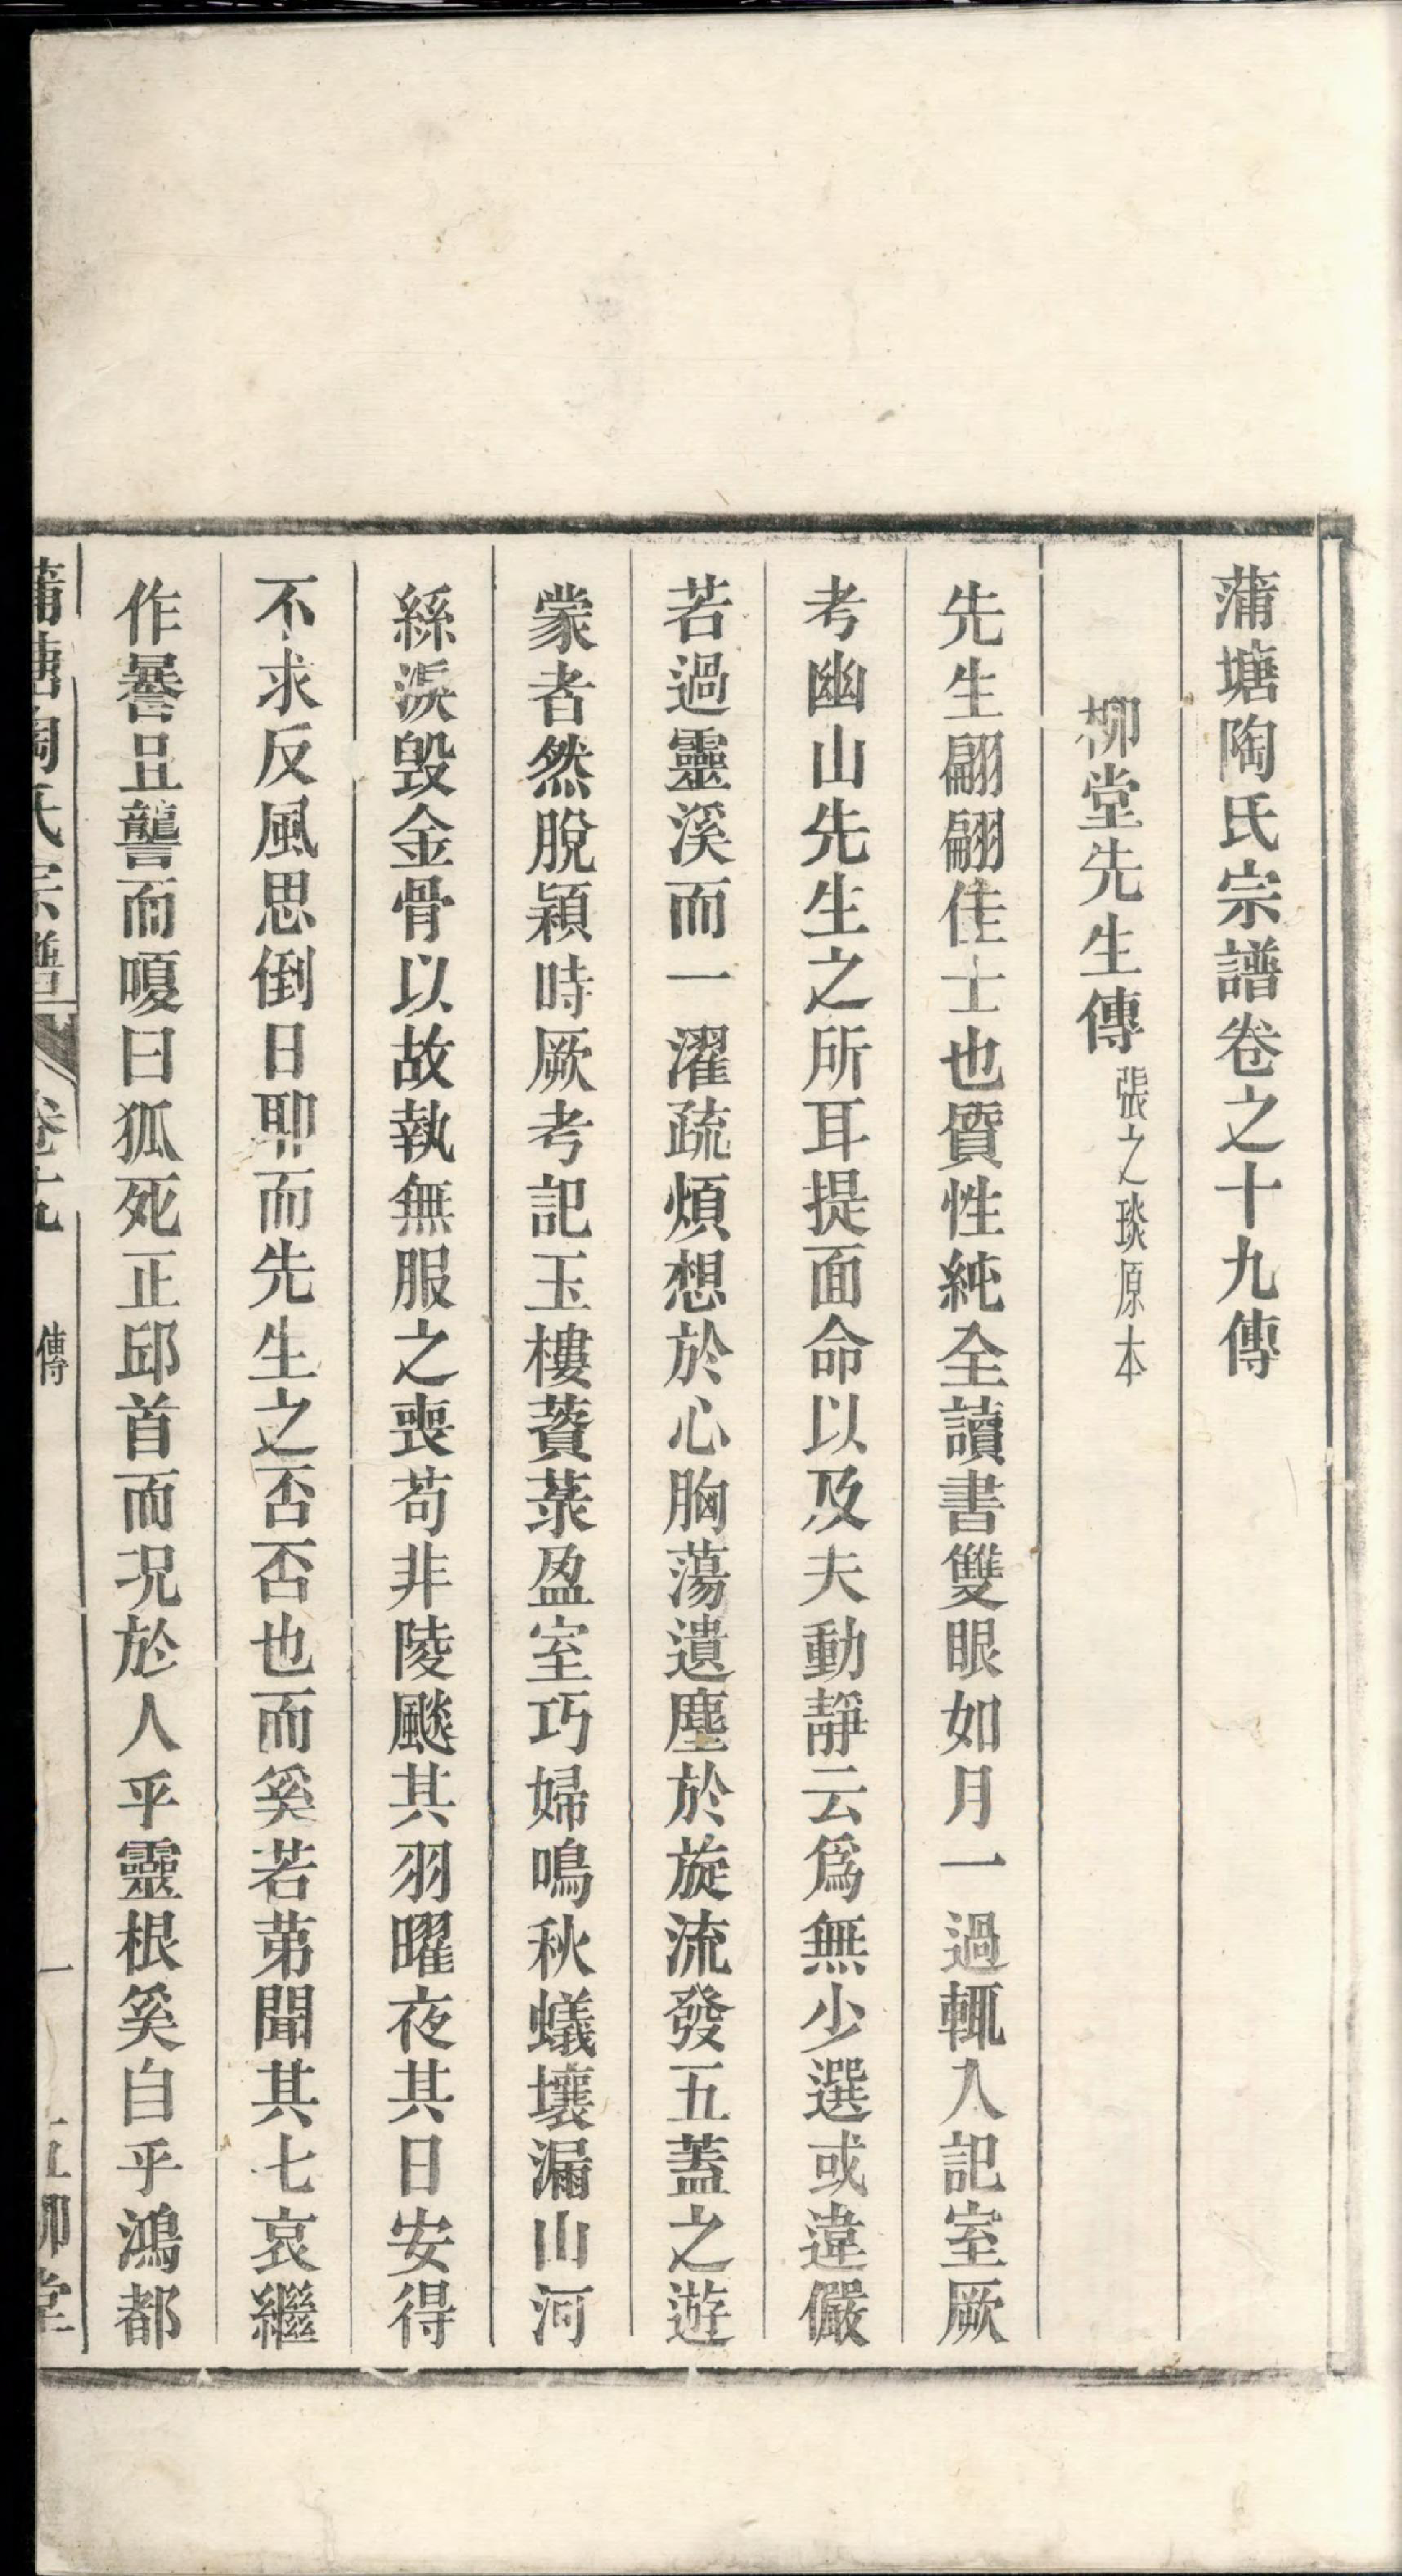 蒲塘陶氏宗譜卷之十九傳
柳堂先生傳張之琰原本
先生翩翩佳士也質性純全讀書雙眼如月一過輒入記室厥
考幽山先生之所耳提面命以及夫動靜云爲無少選或違儼
若過靈溪而一濯疏煩想於心胸蕩遺塵於旋流發五蓋之遊
蒙者然脫穎時厥考記玉樓薋菉盈室巧婦鳴秋蟻壤漏山河
絲淚毀金骨以故執無服之喪苟非陵飈其羽曜夜其日安得
不求反風思倒日耶而先生之否否也而奚若苐聞其七哀繼
作謈且讋而嗄曰狐死正邱首而况於人乎靈根奚自乎鴻都
蒲塘陶氏宗譜 卷十九 傳 一 五柳堂